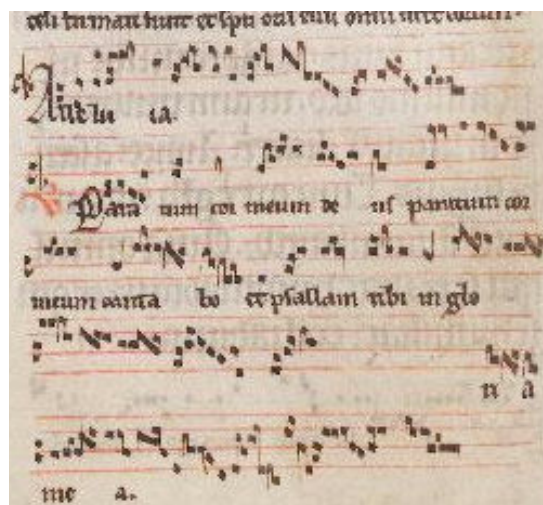 Alle lu ia.
Para tum cor meum de us paratum cor
meum canta bo et psallam tibi in glo
ri a
me a.